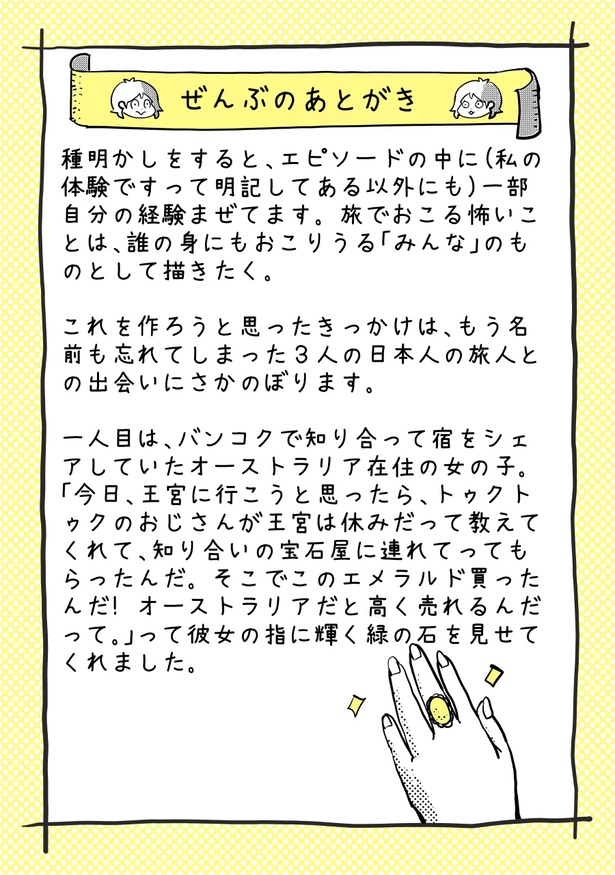 ぜんぶのあとがき
種明かしをすると、エピソードの中に(私の
体験ですって明記してある以外にも)一部
自分の経験まぜてます。旅でおこる怖いこ
とは、誰の身にもおこりうる「みんな」のも
のとして描きたく。
これを作ろうと思ったきっかけは、もう名
前も忘れてしまった3人の日本人の旅人と
の出会いにさかのぼります。
一人目は、バンコクで知り合って宿をシェ
アしていたオーストラリア在住の女の子。
「今日、王宮に行こうと思ったら、トゥクト
ゥクのおじさんが王宮は休みだって教えて
くれて、知り合いの宝石屋に連れてっても
らったんだ。そこでこのエメラルド買った
んだ! オーストラリアだと高く売れるんだ
って。」って彼女の指に輝く緑の石を見せて
くれました。